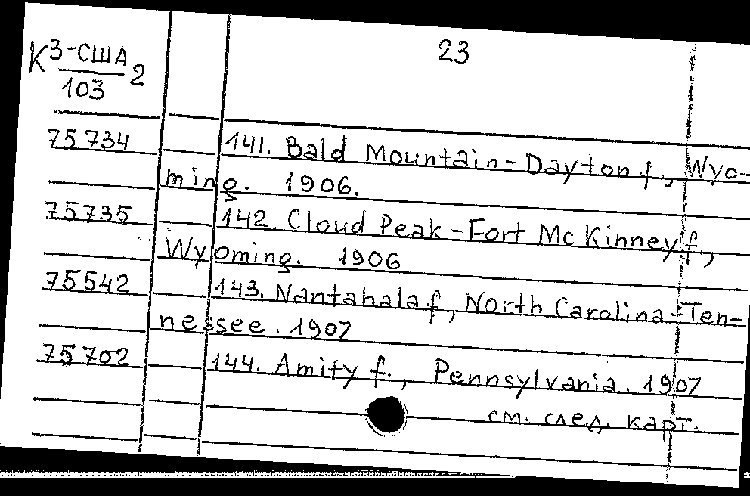 К 3-США 2
103
23
75734 141. Bald Mountain-Dayton f., Wyo-
ming. 1906.
75735 142. Cloud Peak-Fort McKinney f.,
Wyoming. 1906
75542 143. Nantahala f., North Carolina-Ten-
nessee. 1907
75702 144. Amity f., Pennsylvania. 1907
см. след. карт.